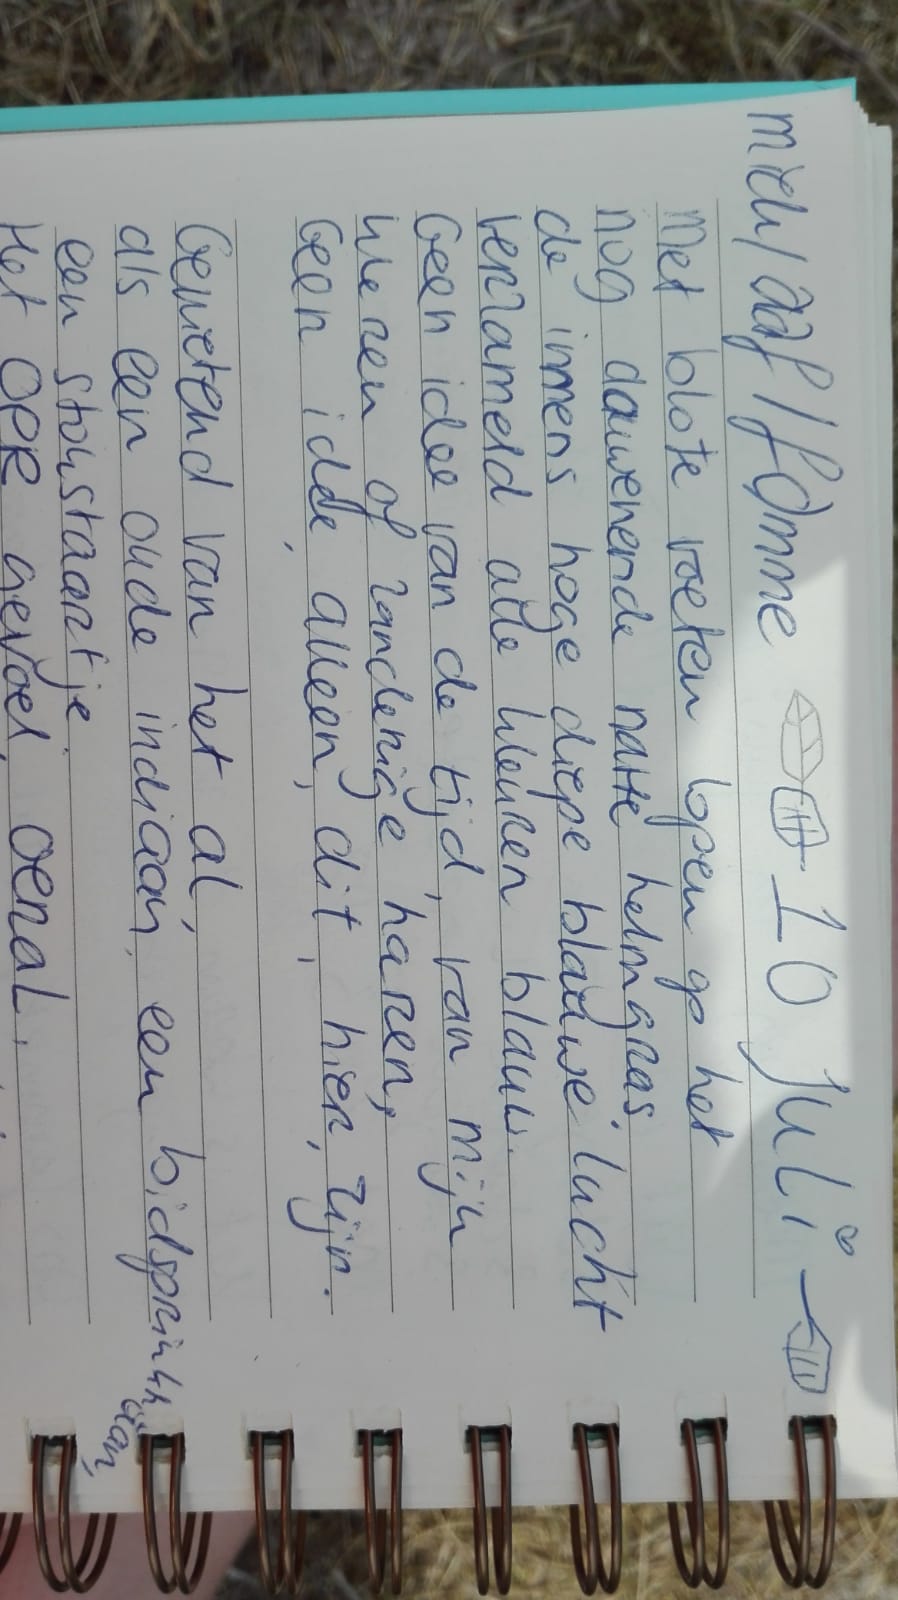 mich/aaf/famme 10 Juli
Met blote voeten lopen op het
nog dauwende natte helmgras.
de immens hoge diepe blauwe lucht
verzameld alle kleuren blauw.
Geen idee van de tijd, van mijn
kleren of zanderige haren,
Geen idee, alleen, dit, hier, zijn.
Genietend van het al,
als een oude indiaan, een bidsprinkhaan,
een stokstaartje.
Het OER gevoel, oeral,